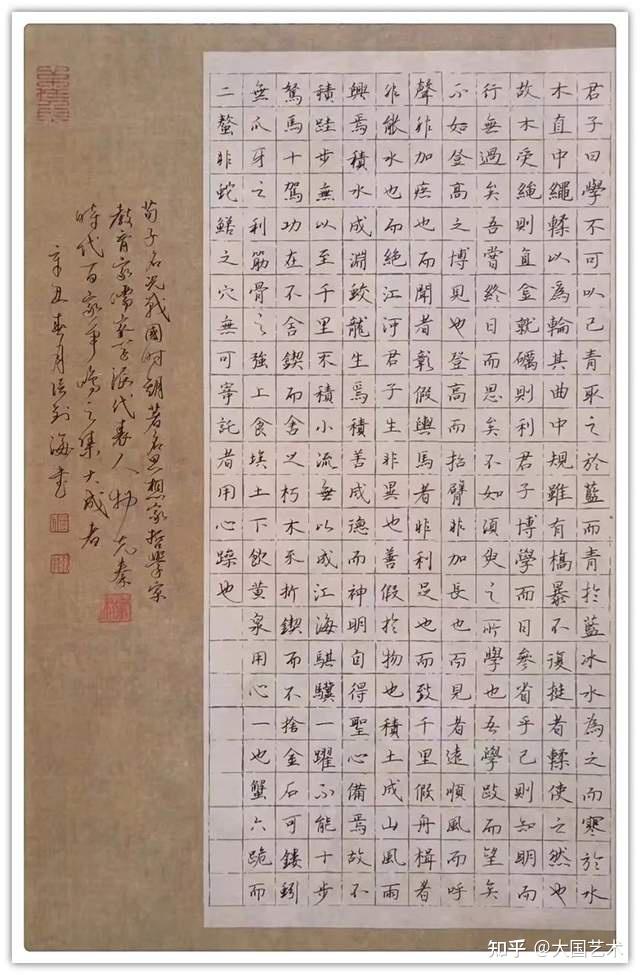 君子曰學不可以已青取之於藍而青於藍冰水為之而寒於水
木直中繩輮以為輪其曲中規雖有槁暴不復挺者輮使之然也
故木受繩則直金就礪則利君子博學而日參省乎己則知明而
行無過矣吾嘗終日而思矣不如須臾之所學也吾學跂而望矣
不如登高之博見也登高而招臂非加長也而見者遠順風而呼
聲非加疾也而聞者彰假輿馬者非利足也而致千里假舟楫者
非能水也而絕江河君子生非異也善假於物也積土成山風雨
興焉積水成淵蛟龍生焉積善成德而神明自得聖心備焉故不
積跬步無以至千里不積小流無以成江海騏驥一躍不能十步
駑馬十駕功在不舍鍥而舍之朽木不折鍥而不捨金石可鏤蚓
無爪牙之利筋骨之強上食埃土下飲黃泉用心一也蟹六跪而
二螯非蛇鱔之穴無可寄託者用心躁也
荀子名況戰國時期著名思想家哲學家
教育家儒家學派代表人物先秦
時代百家爭鳴之集大成者
辛丑春月海書
知乎 @大国艺术